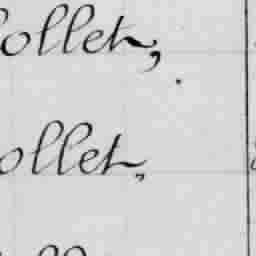 ollet,
ollet,